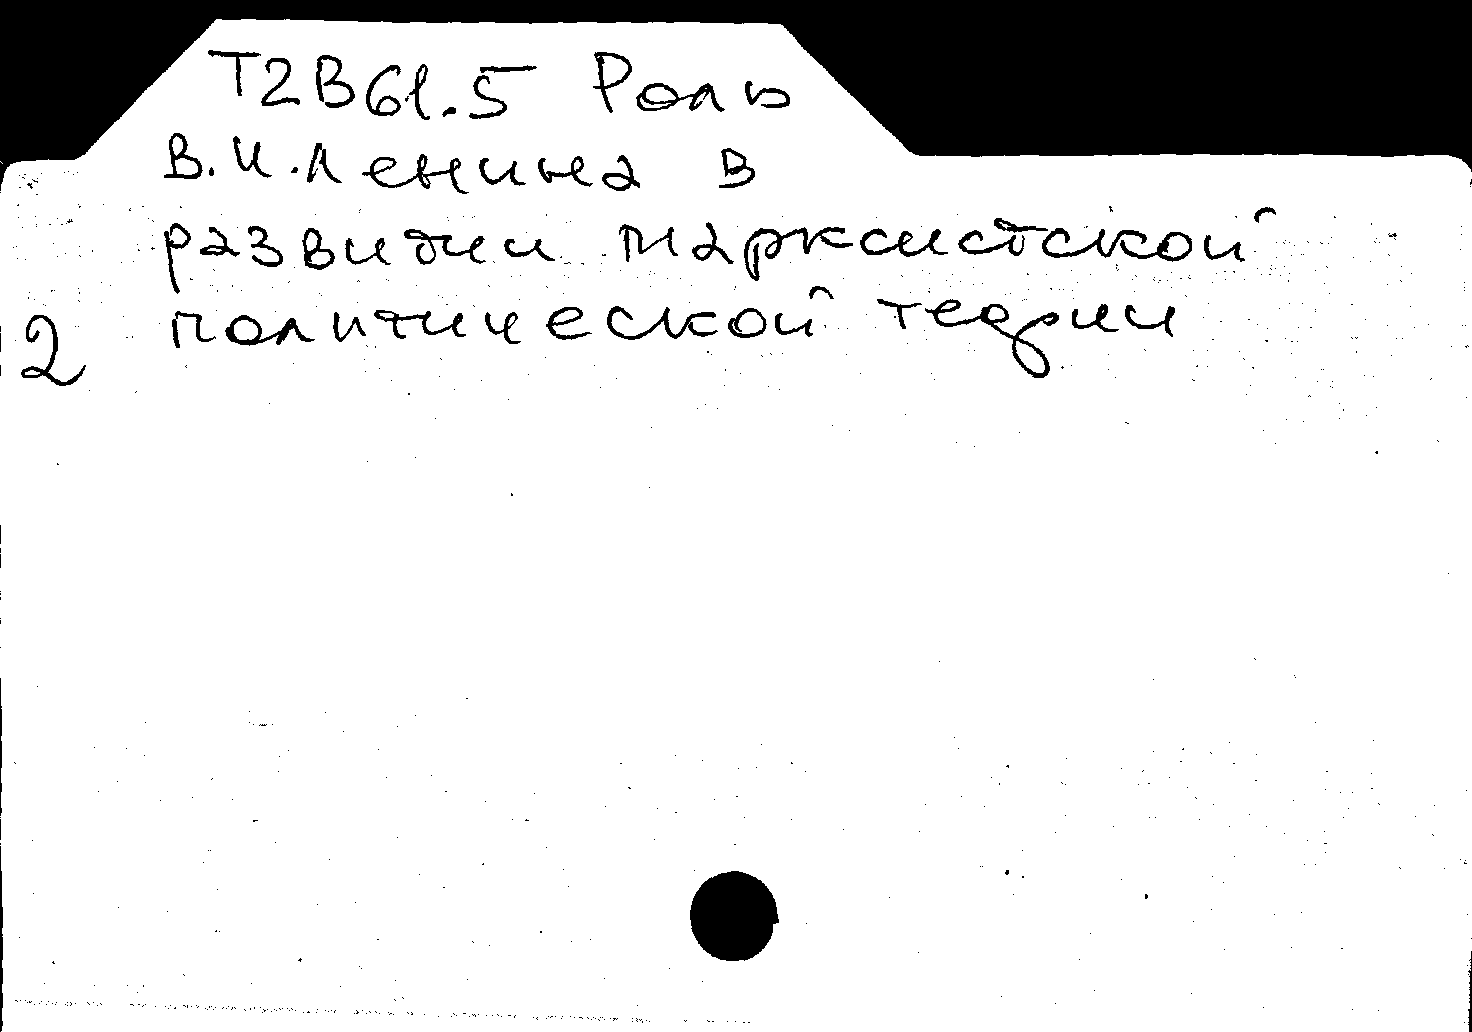 Т2В61.5 Роль
В.И.Ленина в
развитии марксистской
политической теории
2